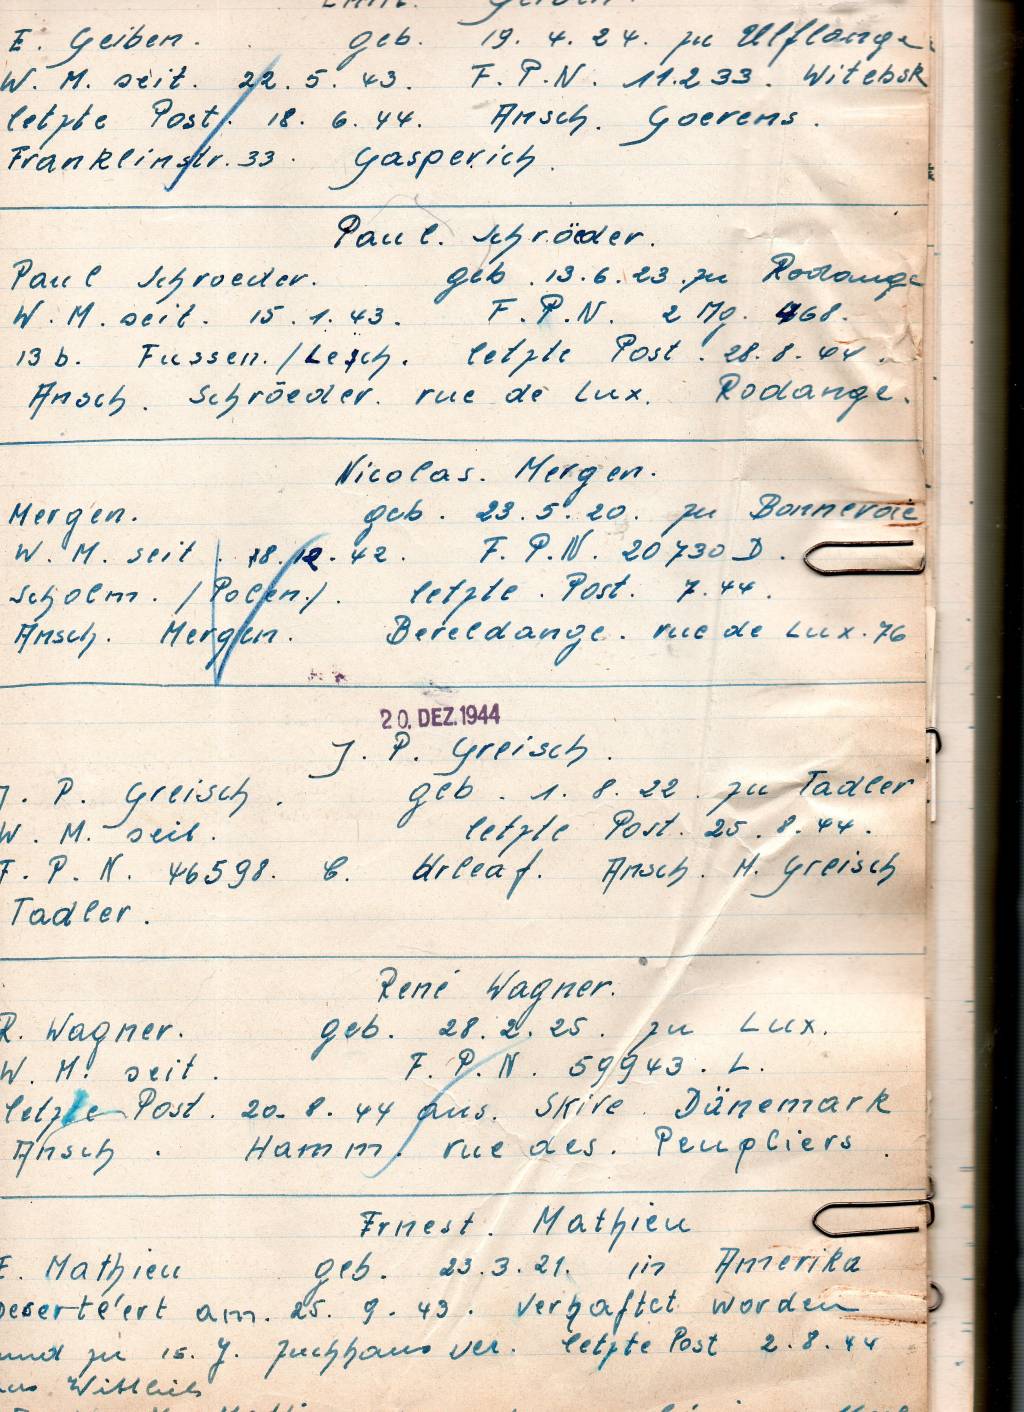 E. Geiben. geb. 19. 4. 24. zu Ulflange
W. M. seit. 22. 5. 43. F. P. N. 11.233. Witebsk
letzte Post. 18. 6. 44. Ansch. Goerens.
Franklinstr. 33. Gasperich.
Paul. Schröder.
Paul Schroeder. geb. 13. 6. 23. zu Rodange
W. M. seit. 15. 1. 43. F. P. N. 2 Mg. 468.
13 b. Füssen. /Lesch. letzte Post. 28. 8. 44.
Ansch. Schröeder. rue de Lux. Rodange.
Nicolas. Mergen.
Mergen. geb. 23. 5. 20. zu Bonnevoie
W. M. seit. 18. 12. 42. F. P. N. 20730 D.
Scholm. /Polen/. letzte. Post. 7. 44.
Ansch. Mergen. Bereldange. rue de Lux. 76
20. DEZ. 1944
J. P. Greisch.
J. P. Greisch. geb. 1. 8. 22. zu Tadler
W. M. seit. letzte Post. 25. 8. 44.
F. P. N. 46598. C. Urleaf. Ansch. M. Greisch
Tadler.
René Wagner.
R. Wagner. geb. 28. 2. 25. zu Lux.
W. M. seit. F. P. N. 59943. L.
letzte Post. 20. 8. 44 aus. Skive Dänemark
Ansch. Hamm. rue des. Peupliers.
Ernest. Mathieu
E. Mathieu geb. 23. 3. 21. in Amerika
am. 25. 9. 43. verhaftet worden
und zu 15. J. Zuchhaus ver. letzte Post 2. 8. 44